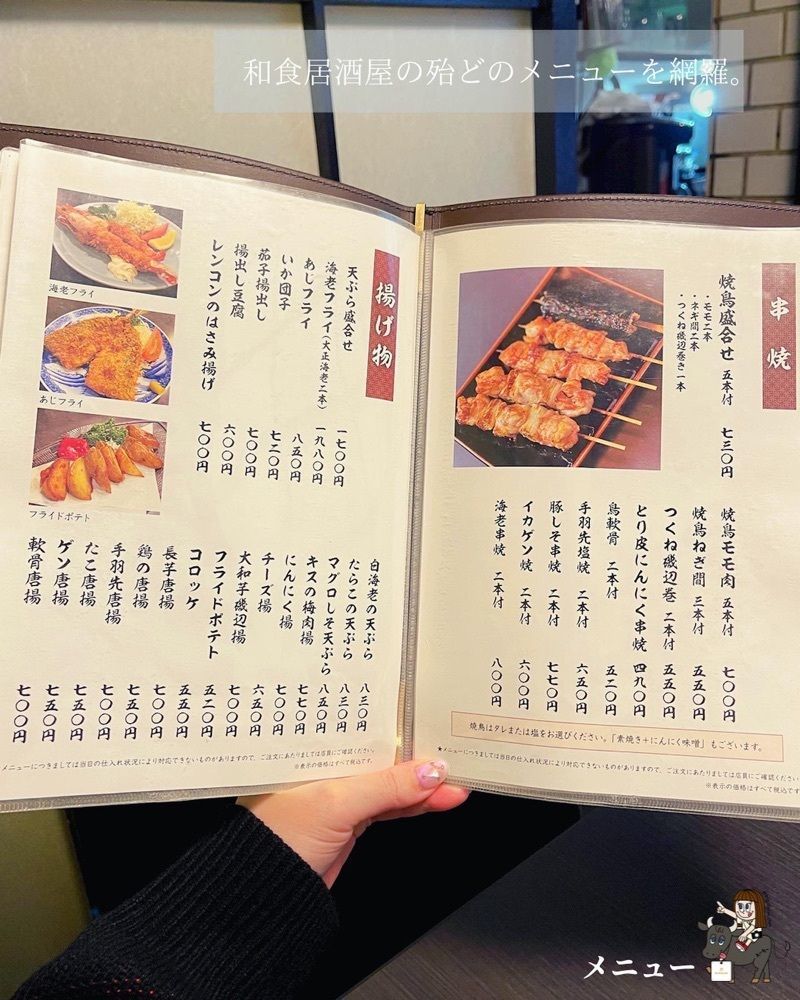 和食居酒屋の殆どのメニューを網羅。
串焼
焼鳥盛合せ 五本付 七三〇円
・モモ二本
・ネギ間二本
・つくね磯辺巻き一本
焼鳥モモ肉 五本付 七〇〇円
焼鳥ねぎ間 三本付 五五〇円
つくね磯辺巻 二本付 五五〇円
とり皮にんにく串焼 四九〇円
鳥軟骨 二本付 五二〇円
手羽先塩焼 二本付 六五〇円
豚しそ串焼 二本付 七七〇円
イカゲソ焼 二本付 六〇〇円
海老串焼 二本付 八〇〇円
焼鳥はタレまたは塩をお選びください。「素焼き+にんにく味噌」もございます。
★メニューにつきましては当日の仕入れ状況により対応できないものがありますので、ご注文にあたりましては店員にご確認ください
※表示の価格はすべて税込です
揚げ物
天ぷら盛合せ 一七〇〇円
海老フライ(大正海老二本) 一九八〇円
あじフライ 八五〇円
いか団子 七二〇円
茄子揚出し 七〇〇円
揚出し豆腐 六〇〇円
レンコンのはさみ揚げ 七〇〇円
海老フライ
あじフライ
フライドポテト
白海老の天ぷら 八三〇円
たらこの天ぷら 八三〇円
マグロしそ天ぷら 八五〇円
キスの梅肉揚 七七〇円
にんにく揚 七〇〇円
チーズ揚 六五〇円
大和芋磯辺揚 七〇〇円
フライドポテト 五二〇円
コロッケ 五五〇円
長芋唐揚 七〇〇円
鶏の唐揚 七五〇円
手羽先唐揚 七〇〇円
たこ唐揚 七五〇円
ゲソ唐揚 七五〇円
軟骨唐揚 七〇〇円
メニューにつきましては当日の仕入れ状況により対応できないものがありますので、ご注文にあたりましては店員にご確認ください。
※表示の価格はすべて税込です。
メニュー